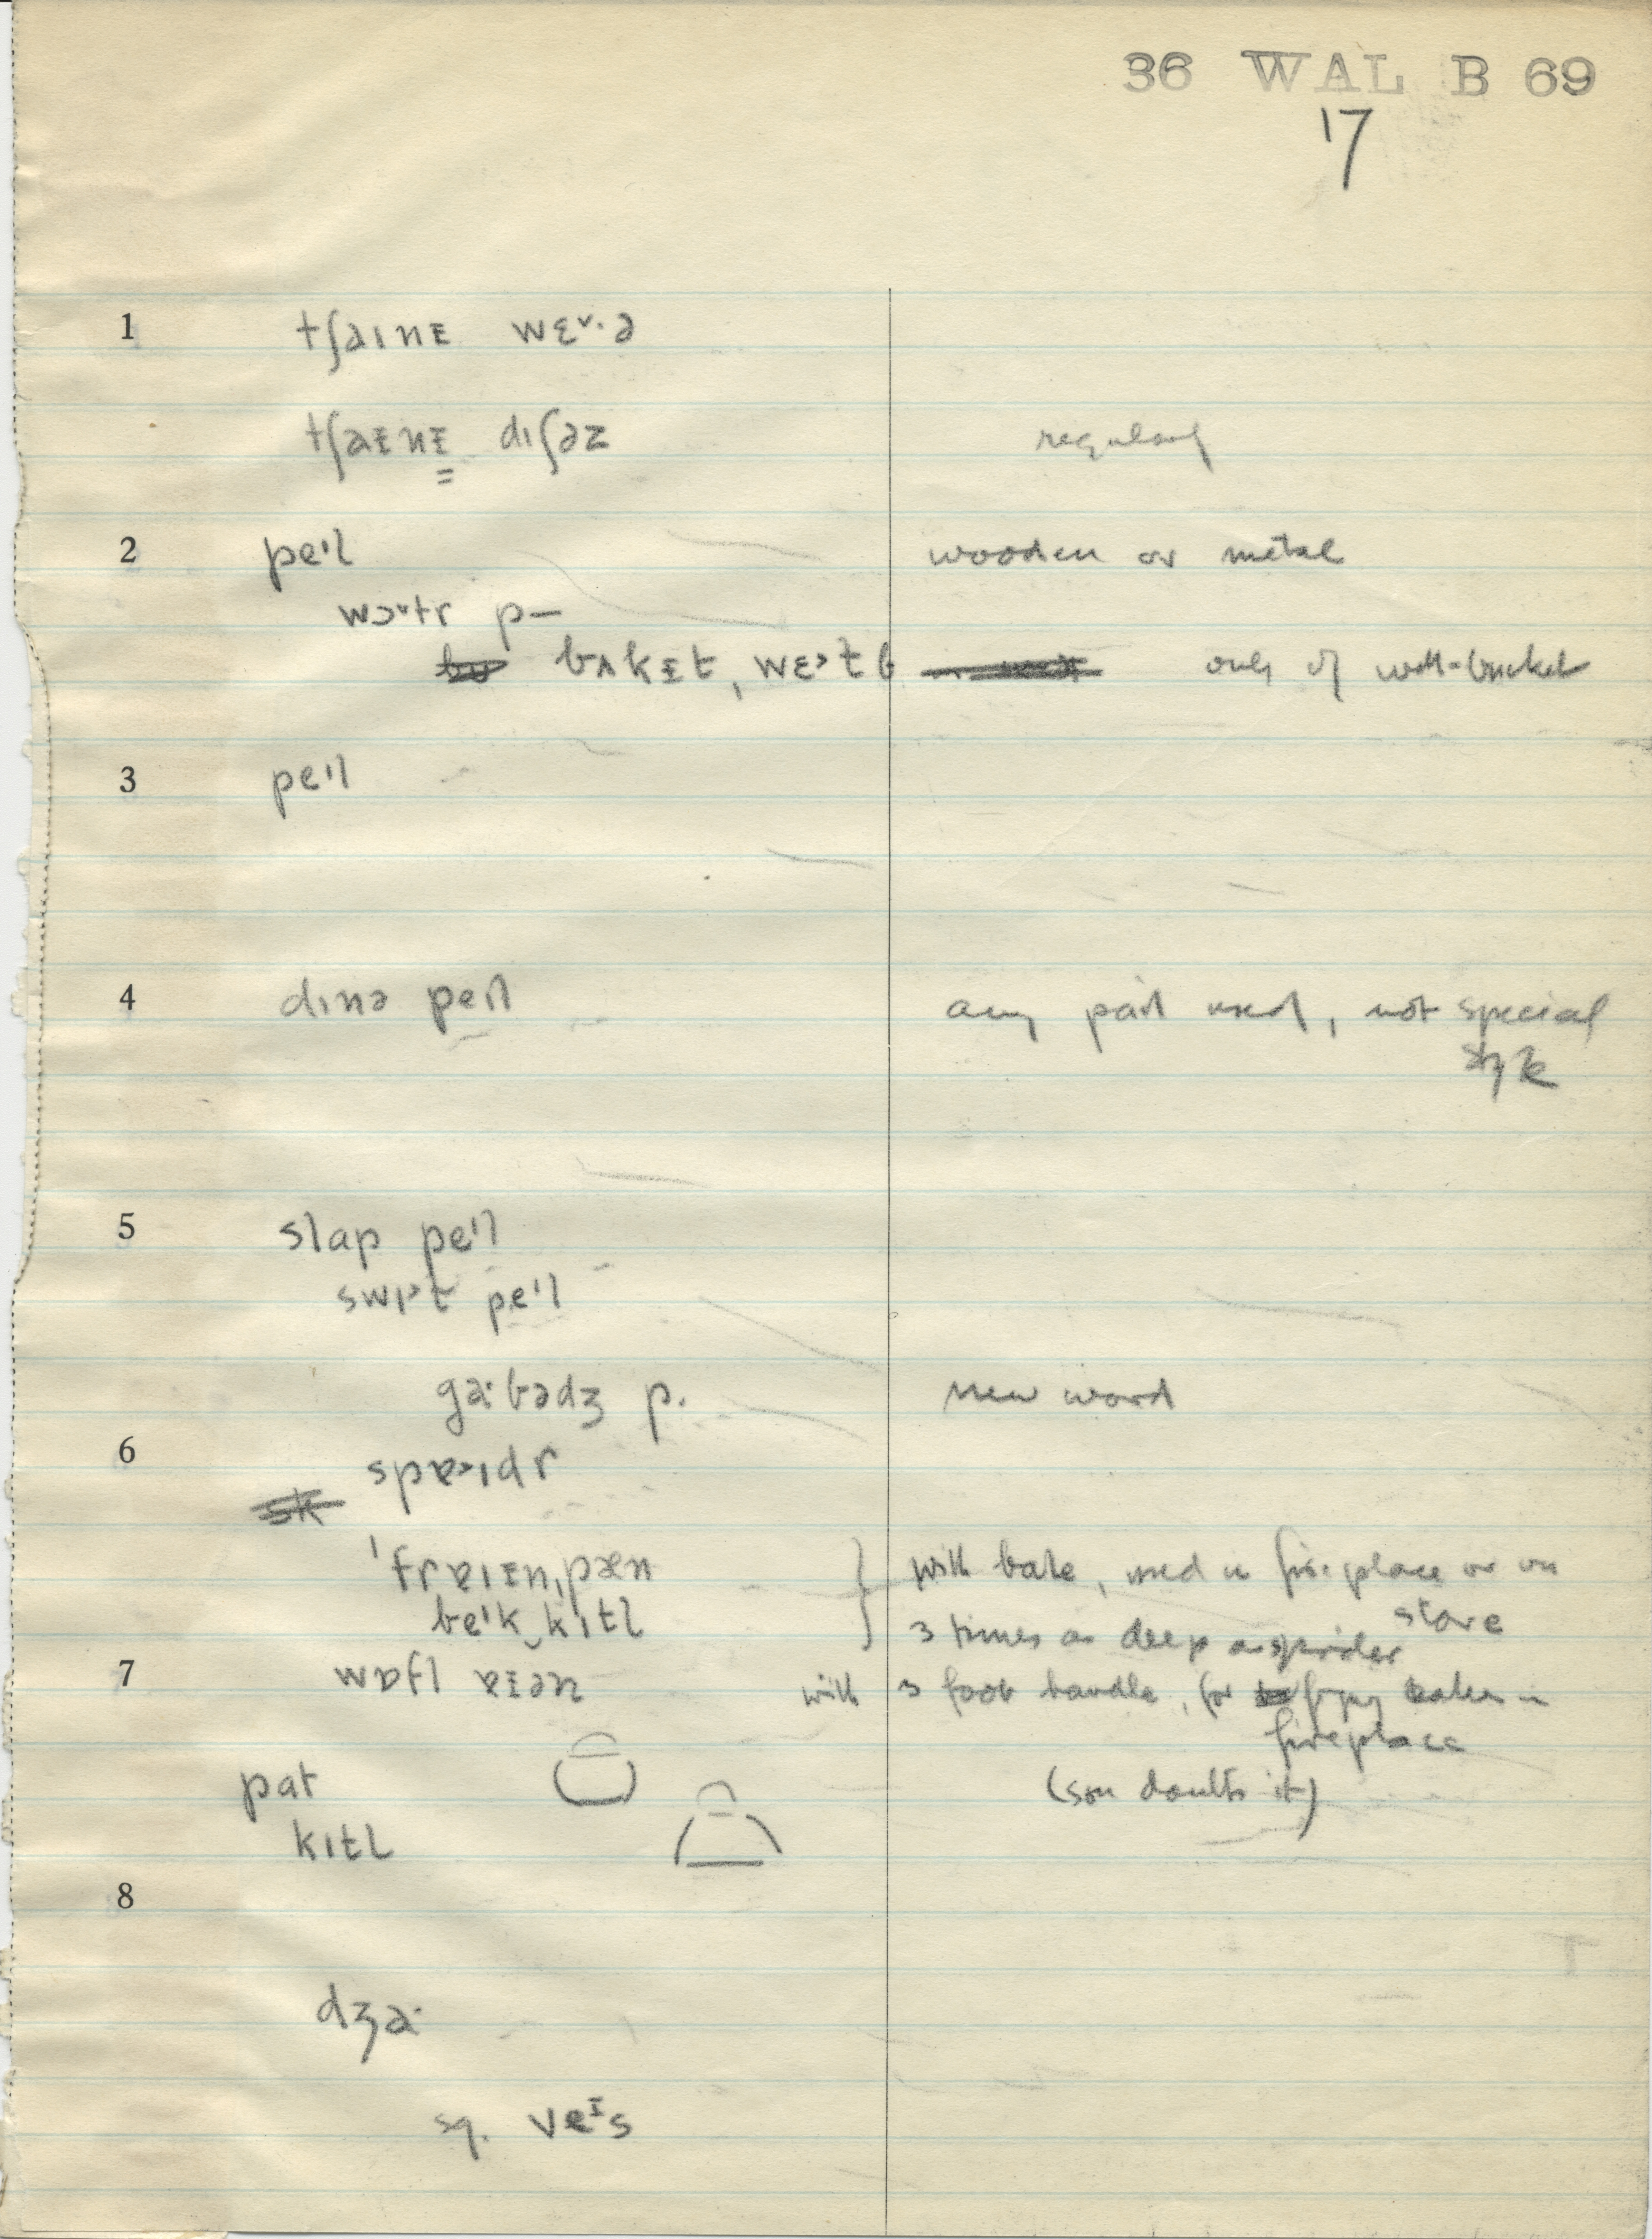 36 WAL B 69
17
1 tʃaɪnᴇ wɛ˅·ə
tʃaᴇnᴇ dɪʃəz regularly
2 peˈl wooden or metal
wɔ˅tr p—
bʌkᴇt, wɛ˃t b only of well-bucket
3 peˈl
4 dɪnə peɪl any pail used, not special
style
5 slap peˈl
swɪ˃t peˈl
gaˑbədʒ p. new word
6 spɐ˃ɪdr
ˈfrɐɪᴇnˌpæn will bake, used in fireplace or on
stove
beˈk‿kɪtl 3 times as deep as spider
7 wɒfl ɐᴇən with 3 foot handle, for frying cakes in
fireplace
pat (son doubts it)
kɪtl
8
dʒaˑ
sq. veᴵs